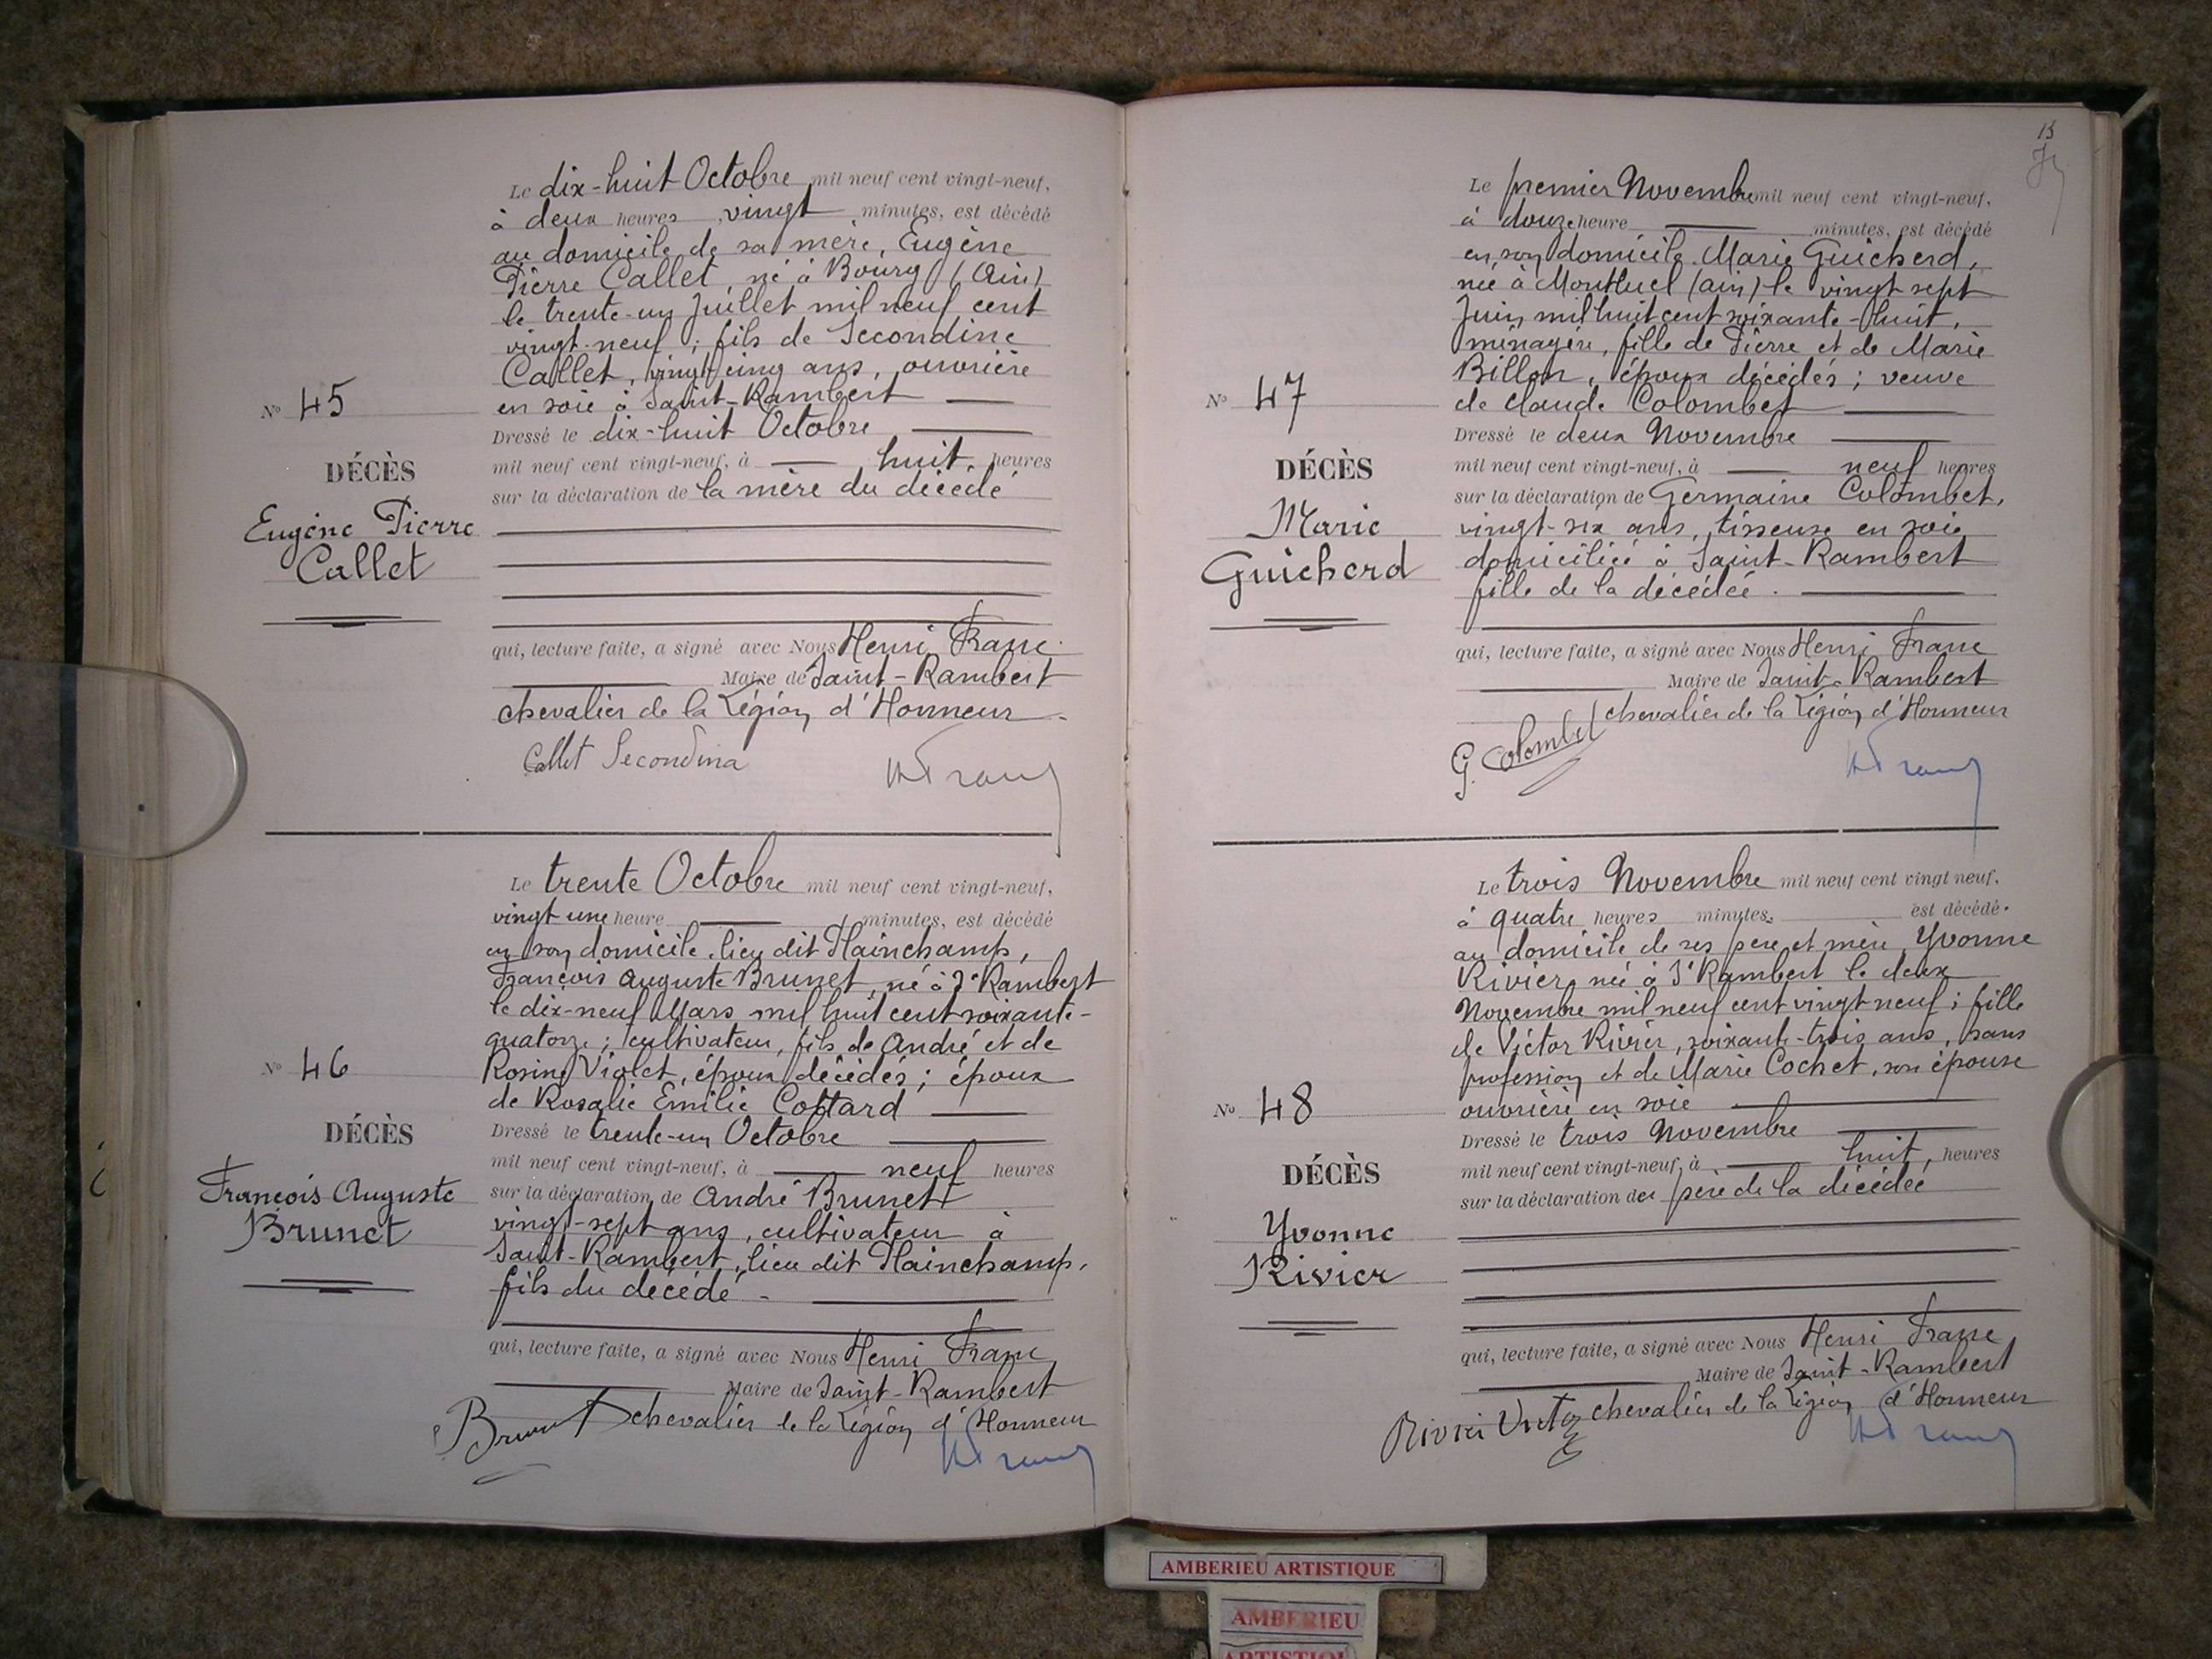 Le dix-huit Octobre mil neuf cent vingt-neuf,
à deux heures vingt minutes, est décédé
au domicile de sa mère, Eugène
Pierre Callet, né à Bourg (Ain)
le trente-un Juillet mil neuf cent
vingt-neuf ; fils de Secondine
Callet, vingt cinq ans, ouvrière
en soie à Saint-Rambert
Dressé le dix-huit Octobre
mil neuf cent vingt-neuf, à huit heures
sur la déclaration de la mère du décédé
qui, lecture faite, a signé avec Nous Henri Franc
Maire de Saint-Rambert
chevalier de la Légion d'Honneur
Callet Secondina
HFranc
N° 45
DÉCÈS
Eugène Pierre
Callet
Le trente Octobre mil neuf cent vingt-neuf,
vingt une heure minutes, est décédé
en son domicile, lieu dit Plainchamp,
François Auguste Brunet, né à St Rambert
le dix-neuf Mars mil huit cent soixante-
quatorze ; cultivateur, fils de André et de
Rosine Violet, époux décédés ; époux
de Rosalie Emilie Cottard
Dressé le trente-un Octobre
mil neuf cent vingt-neuf, à neuf heures
sur la déclaration de André Brunet
vingt-sept ans, cultivateur à
Saint-Rambert, lieu dit Plainchamp,
fils du décédé
qui, lecture faite, a signé avec Nous Henri Franc
Maire de Saint-Rambert
chevalier de la Légion d'Honneur
Brunet
HFranc
N° 46
DÉCÈS
François Auguste
Brunet
13
Le premier Novembre mil neuf cent vingt-neuf,
à douze heure minutes, est décédé
en son domicile Marie Guicherd,
née à Montluel (ain) le vingt sept
Juin mil huit cent soixante-huit,
ménagère, fille de Pierre et de Marie
Billon, époux décédés ; veuve
de Claude Colombet
Dressé le deux Novembre
mil neuf cent vingt-neuf, à neuf heures
sur la déclaration de Germaine Colombet,
vingt-six ans, tisseuse en soie
domiciliée à Saint-Rambert
fille de la décédée.
qui, lecture faite, a signé avec Nous Henri Franc
Maire de Saint-Rambert
chevalier de la Légion d'Honneur
G. Colombet
HFranc
N° 47
DÉCÈS
Marie
Guicherd
Le trois Novembre mil neuf cent vingt neuf,
à quatre heures minutes, est décédé
au domicile de ses père et mère, Yvonne
Rivier, née à St Rambert le deux
Novembre mil neuf cent vingt neuf ; fille
de Victor Rivier, soixante-trois ans, sans
profession et de Marie Cochet, son épouse
ouvrière en soie
Dressé le trois Novembre
mil neuf cent vingt-neuf, à huit, heures
sur la déclaration du père de la décédée
qui, lecture faite, a signé avec Nous Henri Franc
Maire de Saint-Rambert
chevalier de la Légion d'Honneur
Rivier Victor
HFranc
N° 48
DÉCÈS
Yvonne
Rivier
AMBERIEU ARTISTIQUE
AMBERIEU
ARTISTIQUE